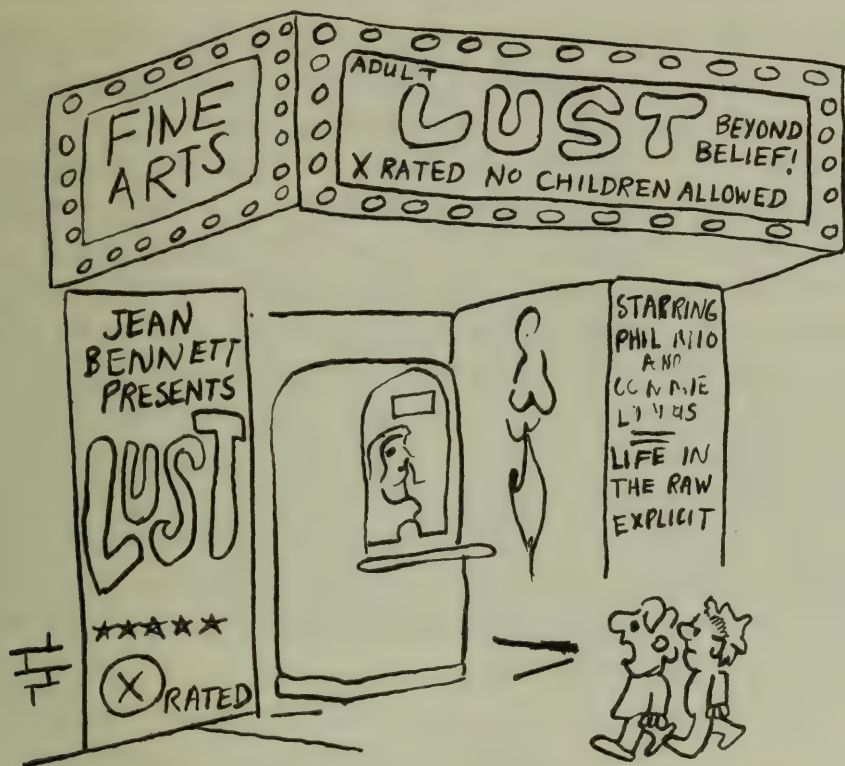 FINE
ARTS
ADULT
LUST
BEYOND
BELIEF!
X RATED NO CHILDREN ALLOWED
JEAN
BENNETT
PRESENTS
LUST
X RATED
STARRING
PHIL
AND
LIFE IN
THE RAW
EXPLICIT